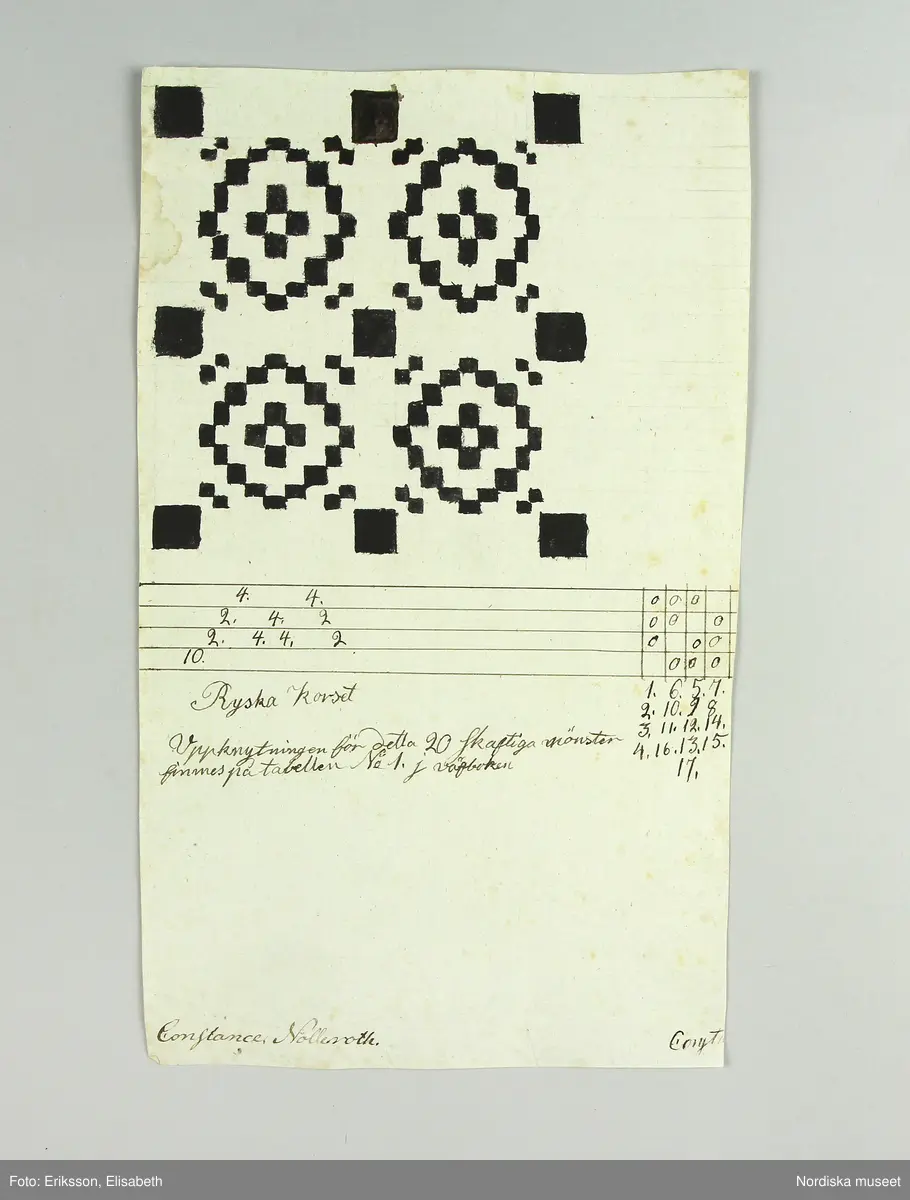 4. 4.
2. 4. 2
2. 4. 4. 2
10.
o o o
o o o
o o o
o o o
1. 6. 5. 7.
2. 10. 9 8
3. 11. 12. 14.
4. 16. 13. 15.
17.
Ryska Korset
Uppknytningen för detta 20 skaftiga mönster
finnes på tabellen No 1. j väfboken
Constance Nolleroth.
Const
Foto: Eriksson, Elisabeth
Nordiska museet